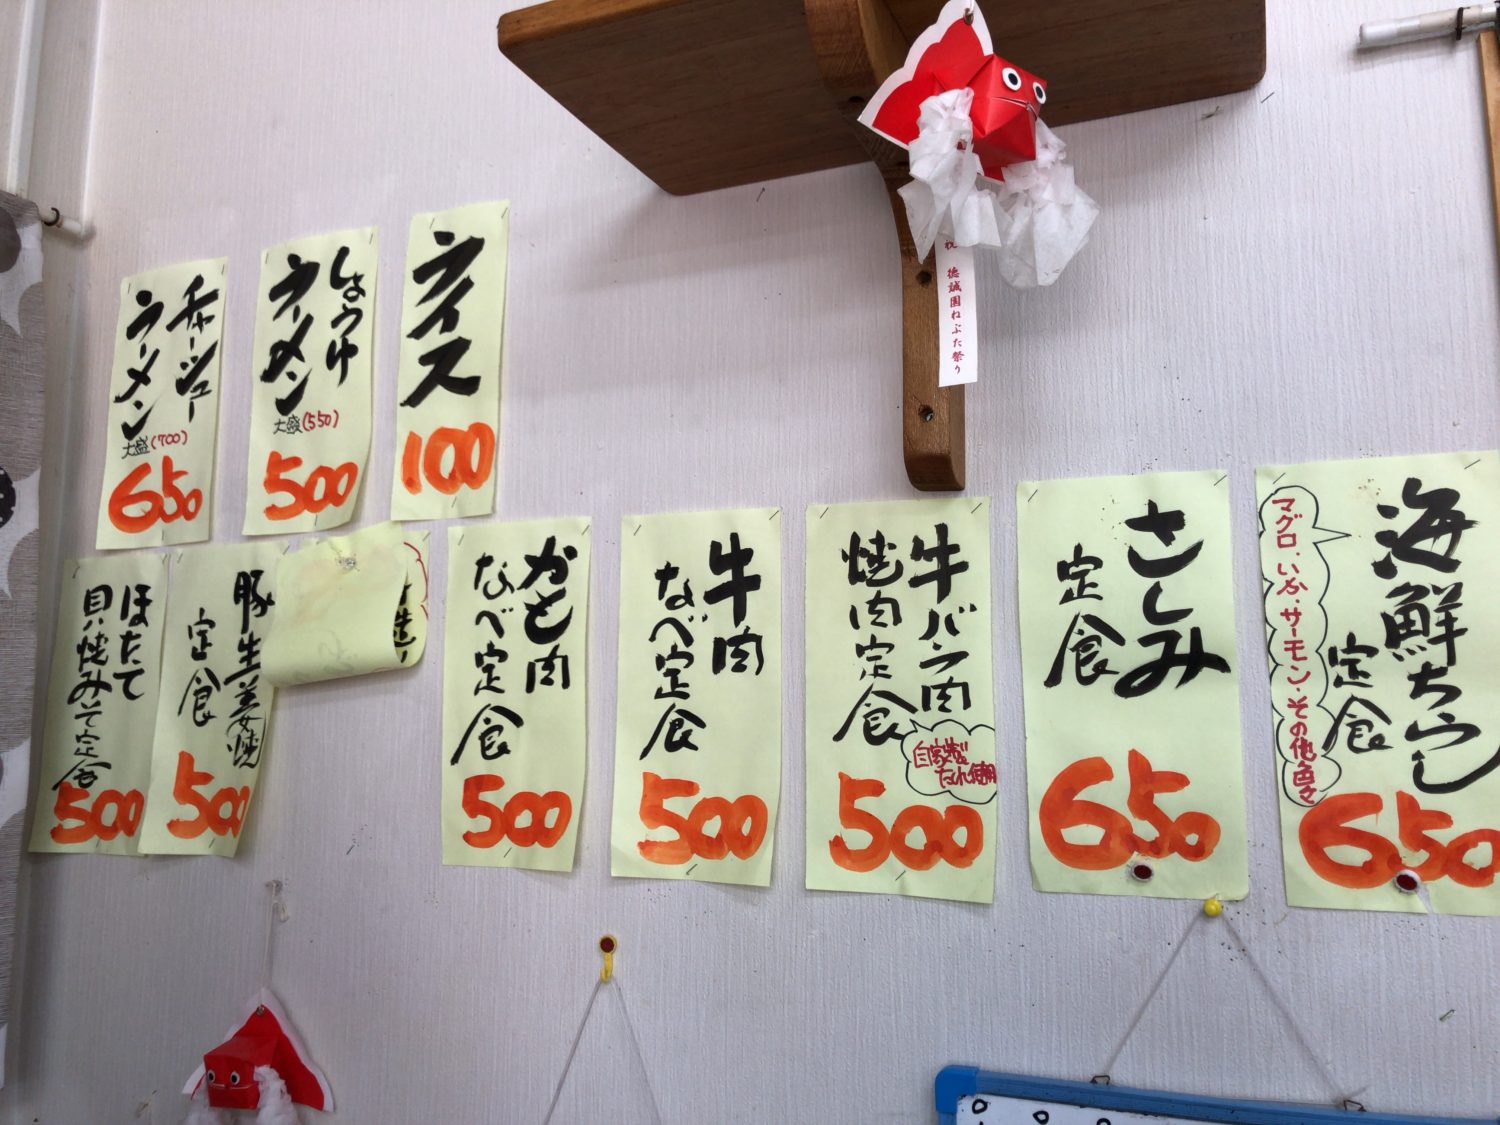 海鮮ちらし
定食
マグロ、いか、サーモン、その他色々
650
さしみ
定食
650
牛バラ肉
焼肉定食
自家製
たれ使用
500
牛肉
なべ定食
500
かも肉
なべ定食
500
豚生姜焼
定食
500
ほたて
貝焼みそ定食
500
ライス
100
しょうゆ
ラーメン
大盛(550)
500
チャーシュー
ラーメン
大盛(700)
650
祝 徳誠園ねぶた祭り